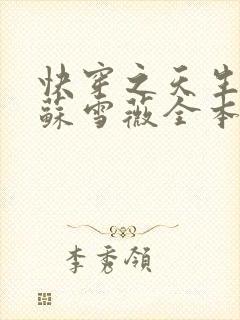 快穿之天生
蘇雪薇全本
李秀領